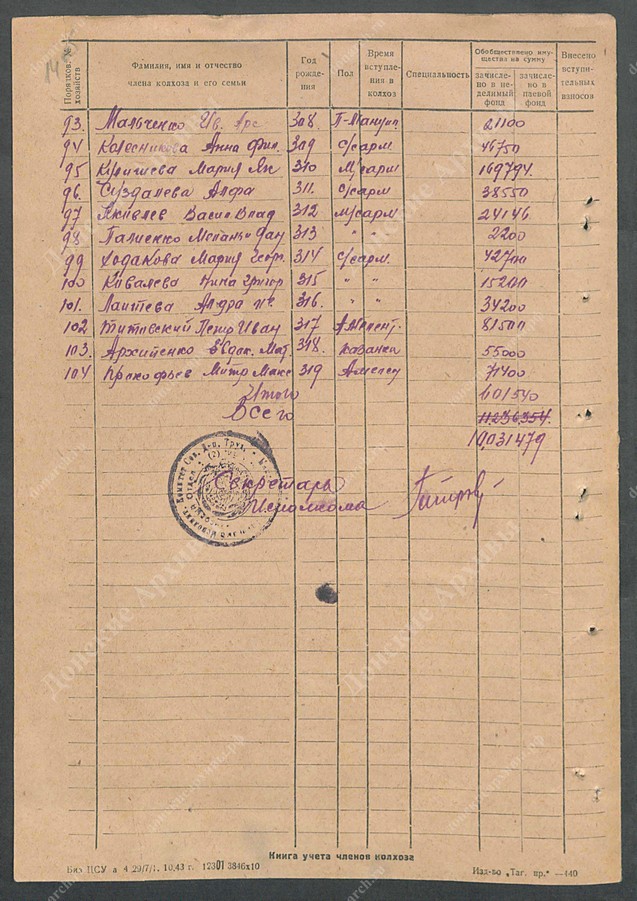 Порядков. № хозяйств
Фамилия, имя и отчество члена колхоза и его семьи
Год рождения
Пол
Время вступления в колхоз
Специальность
Обобществлено имущества на сумму
зачислено в неделимый фонд
зачислено в паевой фонд
Внесено вступительных взносов
93. Мальченко Ив. Арс. 308. 21100
94 Колесникова Анна Фил. 309 С/сарм 46750
95 Мария 310 М/сарм 169794.
96. Суздалева 311. С/сарм 38550
97 Яковлев Васил Влад 312 М/сарм 24146
98 Палиенко Меланья Дан 313 " " 2200
99 Ходакова Мария Геор. 314 С/сарм. 42700
100 Ковалева Нина Григор 315 " " 15200
101. Лаптева 316. " " 34200
102 Титовский Петр Иван 317 81500
103. Архипенко Евдок. Мат. 318. Казанки 55000
104 Прокофьев Митр Макс 319 71400
Итого 601540
Всего 11236354.
10,031479
Секретарь
Исполкома
Книга учета членов колхоза
10,43 г. 12301 3846х10
Изд-во „Таг. пр." —440